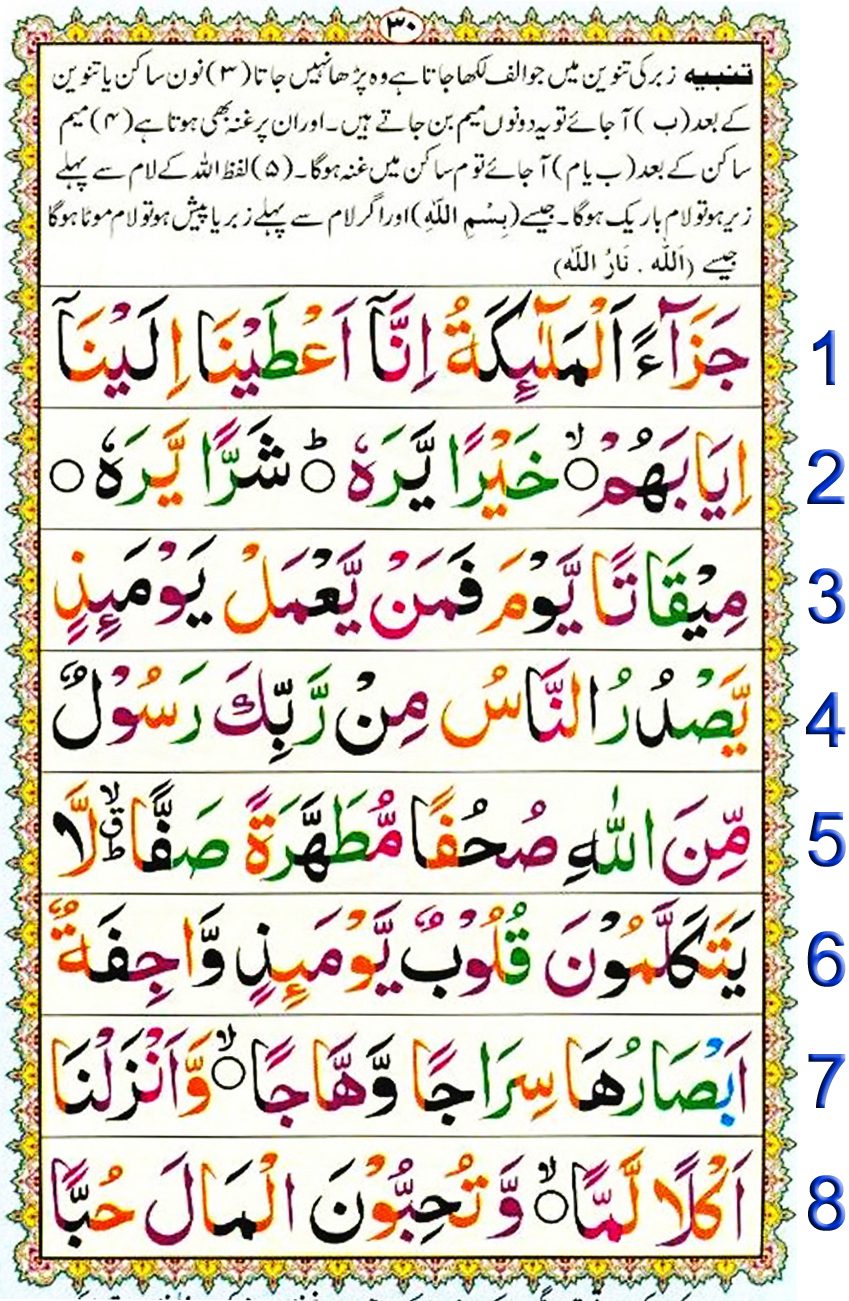 ٣٠
تنبیہ زبر کی تنوین میں جو الف لکھا جاتا ہے وہ پڑھا نہیں جاتا (٣) نون ساکن یا تنوین
کے بعد (ب) آ جائے تو یہ دونوں میم بن جاتے ہیں۔ اور ان پر غنہ بھی ہوتا ہے (۴) میم
ساکن کے بعد (ب یا م) آ جائے تو م ساکن میں غنہ ہوگا۔ (۵) لفظ اللہ کے لام سے پہلے
زیر ہو تو لام باریک ہوگا۔ جیسے (بِسْمِ اللّٰهِ) اور اگر لام سے پہلے زبر یا پیش ہو تو لام موٹا ہوگا
جیسے (اَللّٰه . نَارُ اللّٰه)
جَزَآءً اَلْمَلٰٓئِكَةُ اِنَّآ اَعْطَيْنَا اِلَيْنَآ 1
اِيَابَهُمْ ۙ○ خَيْرًا يَّرَهٗ ؕ○ شَرًّا يَّرَهٗ ○ 2
مِيْقَاتًا يَّوْمَ فَمَنْ يَّعْمَلْ يَوْمَئِذٍ 3
يَّصْدُرُ النَّاسُ مِنْ رَّبِّكَ رَسُوْلٌ 4
مِّنَ اللّٰهِ صُحُفًا مُّطَهَّرَةً صَفًّا ۙقؕ لَّا 5
يَتَكَلَّمُوْنَ قُلُوْبٌ يَّوْمَئِذٍ وَّاجِفَةٌ 6
اَبْصَارُهَا سِرَاجًا وَّهَّاجًا ۙ○ وَّاَنْزَلْنَا 7
اَكْلًا لَّمًّا ۙ○ وَّ تُحِبُّوْنَ الْمَالَ حُبًّا 8